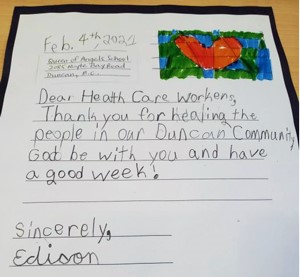 Feb. 4th, 2021
Queen of Angels School
2085 Maple Bay Road
Duncan, B.C.
Dear Health Care Workers,
Thank you for healing the
people in our Duncan Community
God be with you and have
a good week!
Sincerely,
Edison